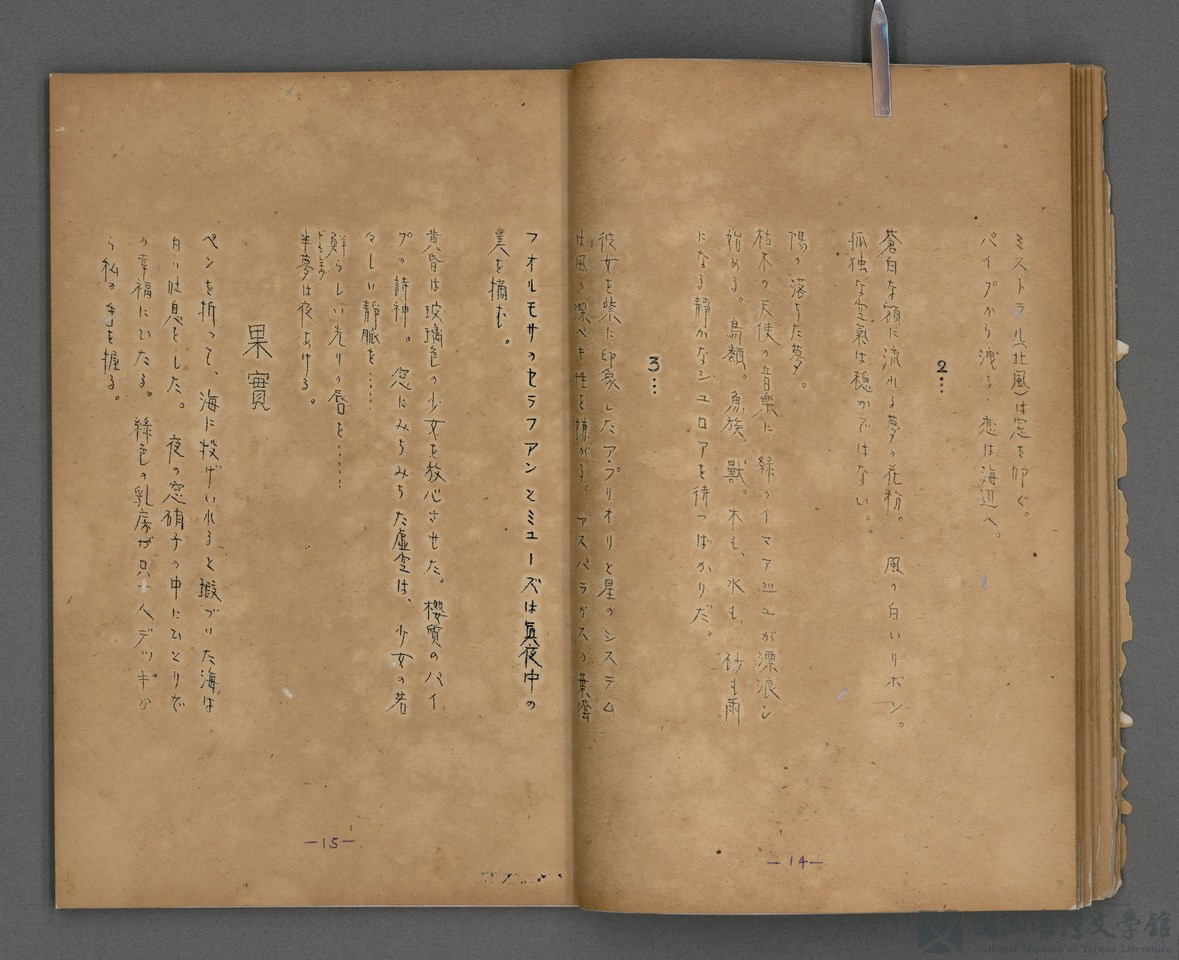 ミストラル(北風)は窓を叩ぐ。
パイプから洩る、恋は海辺へ。
2…
蒼白な額に流れる夢の花粉。 風の白いリボン。
孤独な空氣は穏かではない。
陽の落ちた夢。
枯木の天使の音樂に 緑のイマアジユが漂浪し
始める。鳥類。魚族、獸。木も、水も、砂も雨
になる靜かなシユロアを待つばかりだ。
3…
彼女を紫に印象したア・プリオリと星のシステム
は風の深べき性を嫌がる。 アスパラガスの葉陰
フオルモサのセラフアンとミユーズは眞夜中の
美を摘む。
黄昏は玻璃色の少女を放心させた。櫻實のパイ
プの詩神。 窓にみちみちた虚空は、 少女の若
々しい靜脈を……
鮮らしい光りの唇を……
半夢は夜あける。
果實
ペンを折って、海に投げいれると瑕ついた海は
白い吐息をした。 夜の窓硝子の中にひとりで
の幸福にいたる。 緑色の乳房が只一人デッキか
ら私の手を握る。
—14—
—15—
国立台灣文学館
National Museum of Taiwan Literature